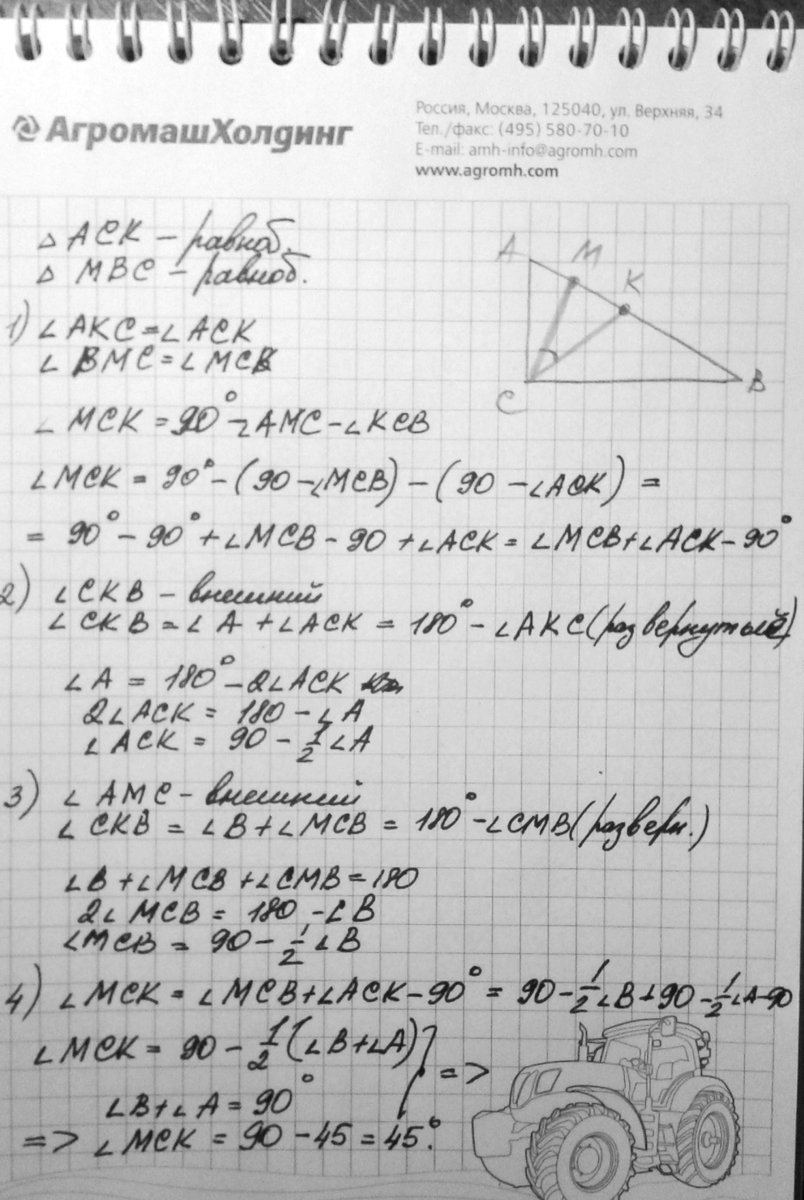 АгромашХолдинг
Россия, Москва, 125040, ул. Верхняя, 34
Тел./факс: (495) 580-70-10
E-mail: amh-info@agromh.com
www.agromh.com
△ ACK – равноб.
△ MBC – равноб.
A M K C B
1) ∠AKC = ∠ACK
∠BMC = ∠MCB
∠MCK = 90° - ∠AMC - ∠KCB
∠MCK = 90° - (90 - ∠MCB) - (90 - ∠ACK) =
= 90° - 90° + ∠MCB - 90 + ∠ACK = ∠MCB + ∠ACK - 90°
2) ∠CKB – внешний
∠CKB = ∠A + ∠ACK = 180° - ∠AKC (развернутый)
∠A = 180° - 2∠ACK
2∠ACK = 180 - ∠A
∠ACK = 90 - 1/2 ∠A
3) ∠AMC – внешний
∠CKB = ∠B + ∠MCB = 180° - ∠CMB (разверн.)
∠B + ∠MCB + ∠CMB = 180
2∠MCB = 180 - ∠B
∠MCB = 90 - 1/2 ∠B
4) ∠MCK = ∠MCB + ∠ACK - 90° = 90 - 1/2 ∠B + 90 - 1/2 ∠A - 90
∠MCK = 90 - 1/2 (∠B + ∠A) } =>
∠B + ∠A = 90°
=> ∠MCK = 90 - 45 = 45°.